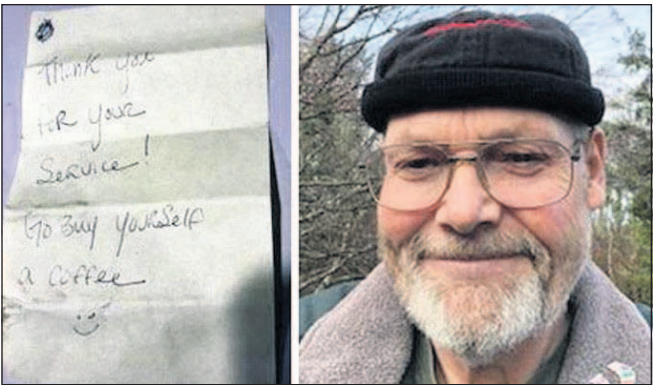 Thank you
for your
Service!
Go Buy yourself
a coffee